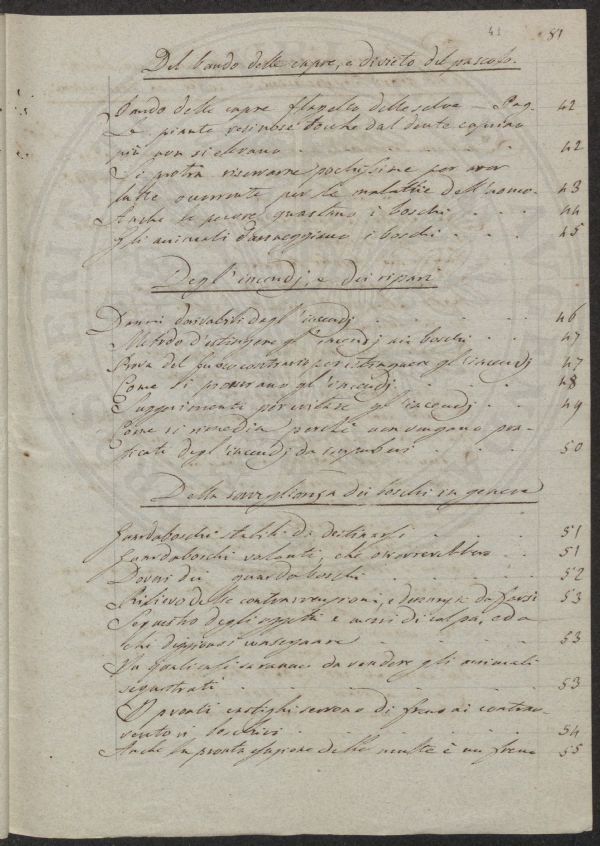 41 81
Del bando delle capre, e divieto del pascolo.
Bando delle capre flagello delle selve — Pag. 42
Le piante resinose tocche dal dente caprino
più non si elevano . . . . . 42
Si potrà riservarne pochissime per aver
latte occorrente per le malattie dell'uomo. 43
Anche le pecore guastano i boschi . . . . 44
Gli animali danneggiano i boschi . . . . 45
Degl'incendj, e dei ripari
Danni derivabili degl'incendj . . . . . 46
Metodo d'estinzione gl'incendj nei boschi . . . 47
Prova del fuoco contrario per estinguere gl'incendj 47
Come si procurano gl'incendj . . . . 48
Suggerimenti per evitare gl'incendj . . . 49
Come si rimedia perché non vengano pra-
ticati degl'incendj da . . . . 50
Della sorveglianza dei boschi in genere
Guardaboschi stabili da destinarsi . . . . 51
Guardaboschi volanti, che occorrerebbero . . 51
Doveri dei guardaboschi . . . . . 52
Rilievo delle contravvenzioni, e denunzie da farsi 53
Sequestro degli oggetti e mezzi di colpa, e da
chi deggionsi consegnare . . . . . 53
In quali casi saranno da vendere gli animali
sequestrati . . . . . 53
I pronti castighi servono di freno ai contrav-
ventori boschivi . . . . . 54
Anche la pronta esazione delle multe è un freno 55